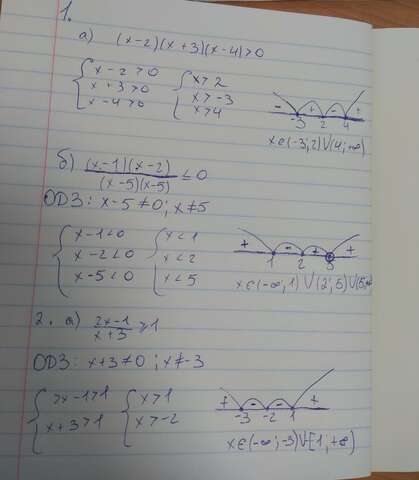 1.
а) (x-2)(x+3)(x-4)>0
x-2>0 x>2
x+3>0 x>-3
x-4>0 x>4
- + - +
-3 2 4
x∈(-3;2)∪(4;+∞)
б) (x-1)(x-2)/(x-5)(x-5) ≤0
ОДЗ: x-5≠0; x≠5
x-1<0 x<1
x-2<0 x<2
x-5<0 x<5
+ - + +
1 2 5
x∈(-∞;1)∪(2;5)∪(5;+∞
2. а) 2x-1/x+3 ≥1
ОДЗ: x+3≠0; x≠-3
x-1≥1 x>1
x+3>1 x>-2
+ - - +
-3 -2 1
x∈(-∞;-3)∪[1;+∞)